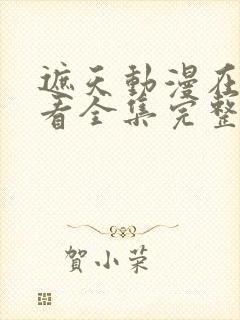 遮天動漫在
看全集完整
賀小荣